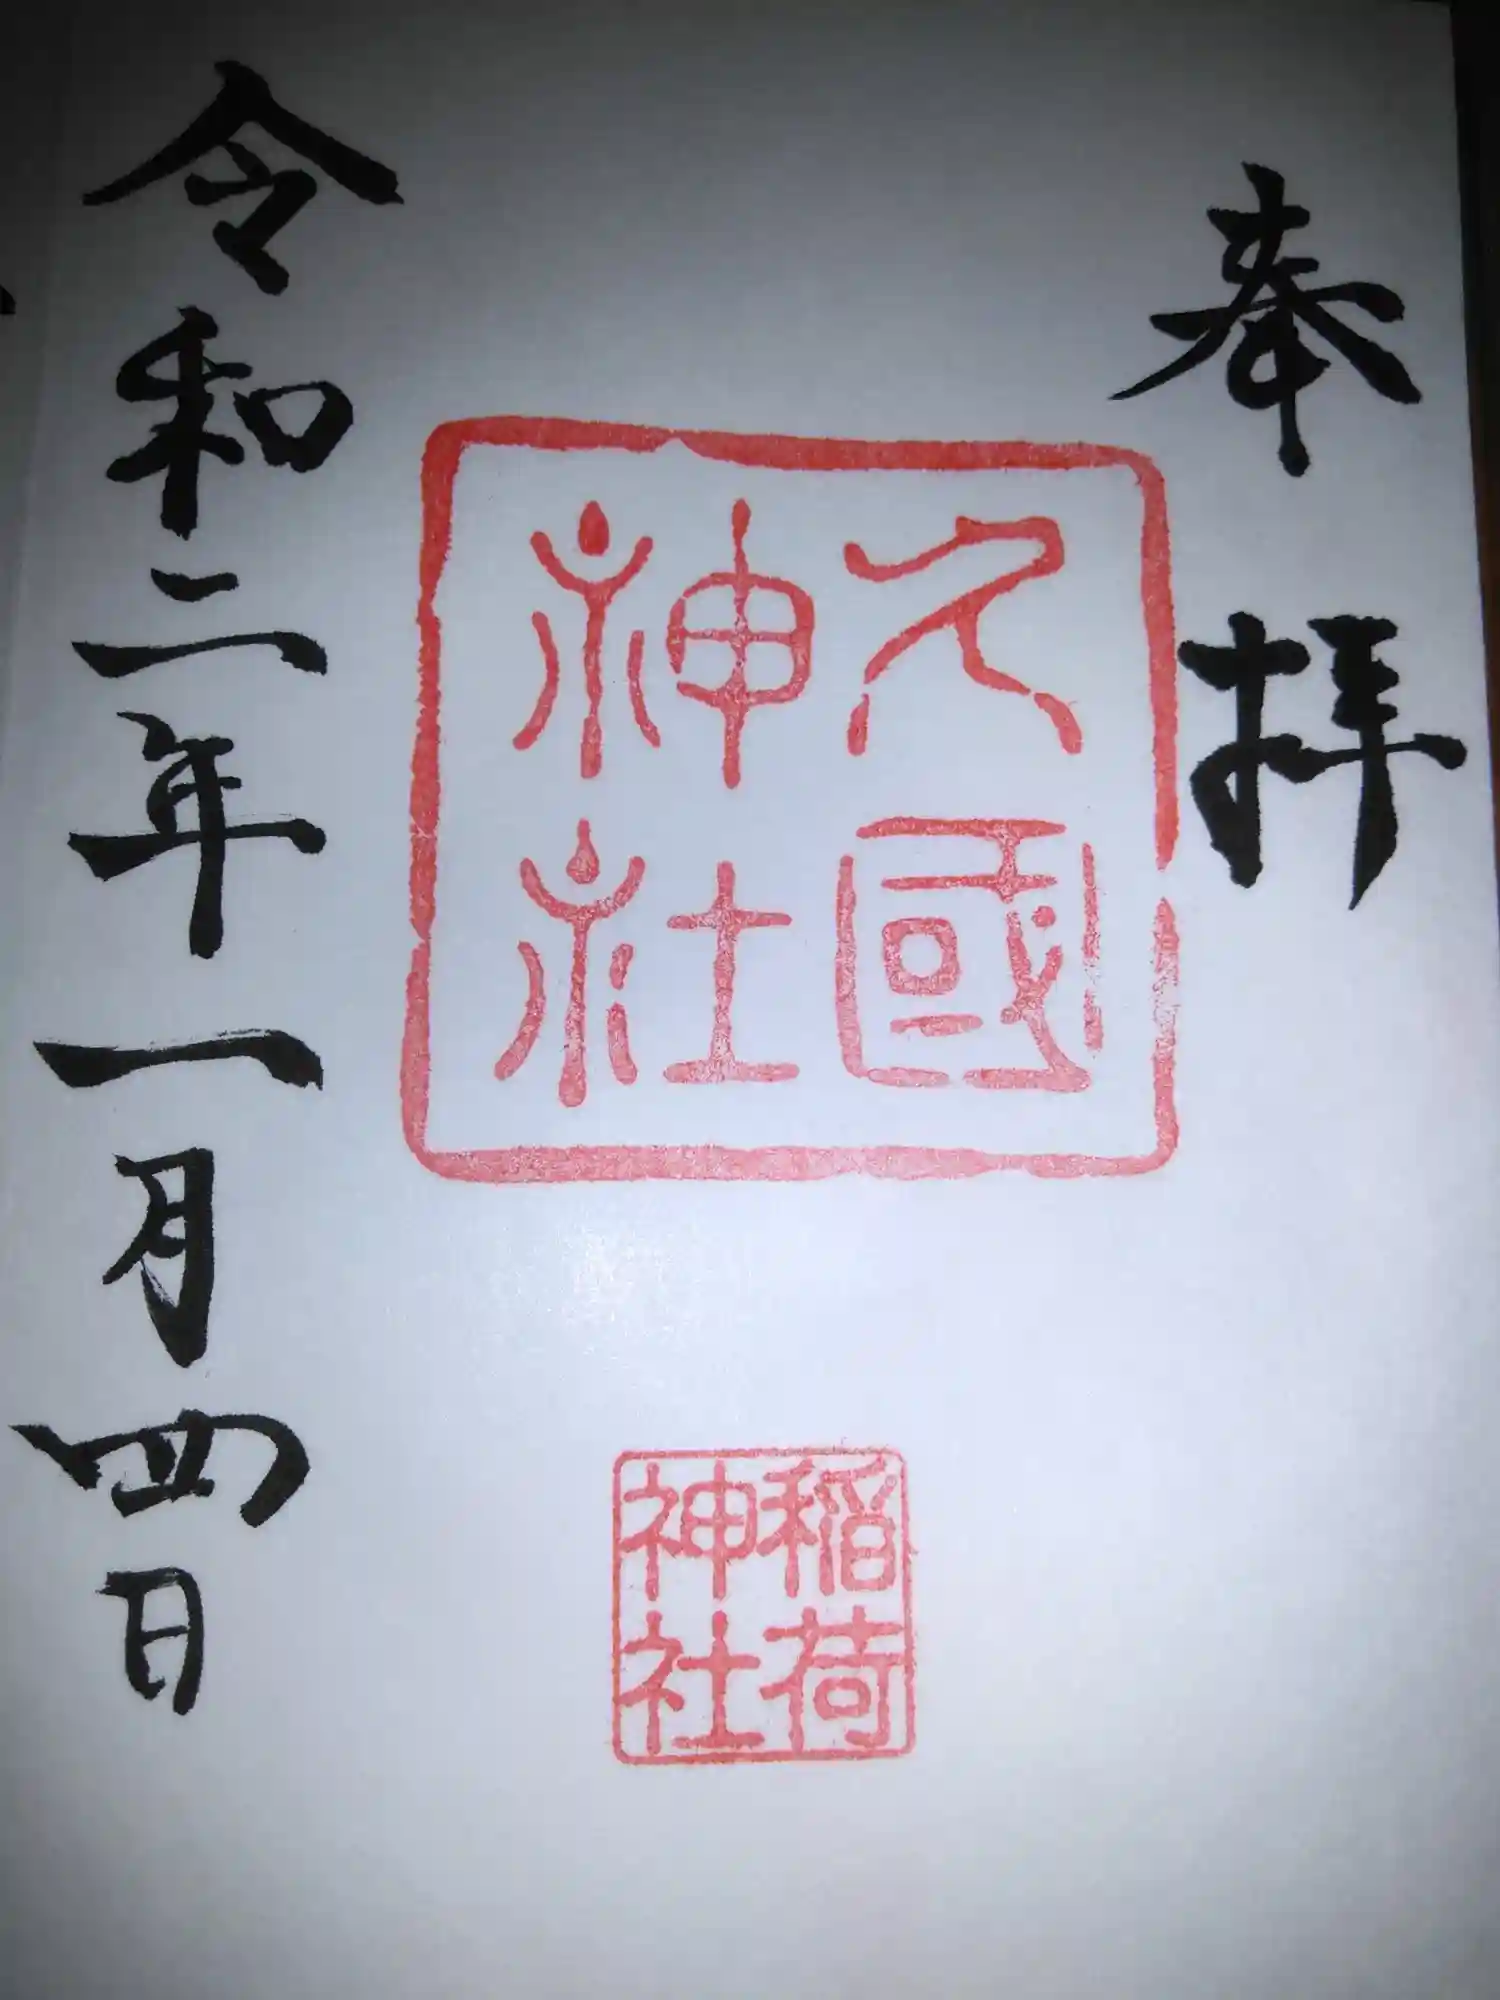 奉拝
久國
神社
稲荷
神社
令和二年一月四日